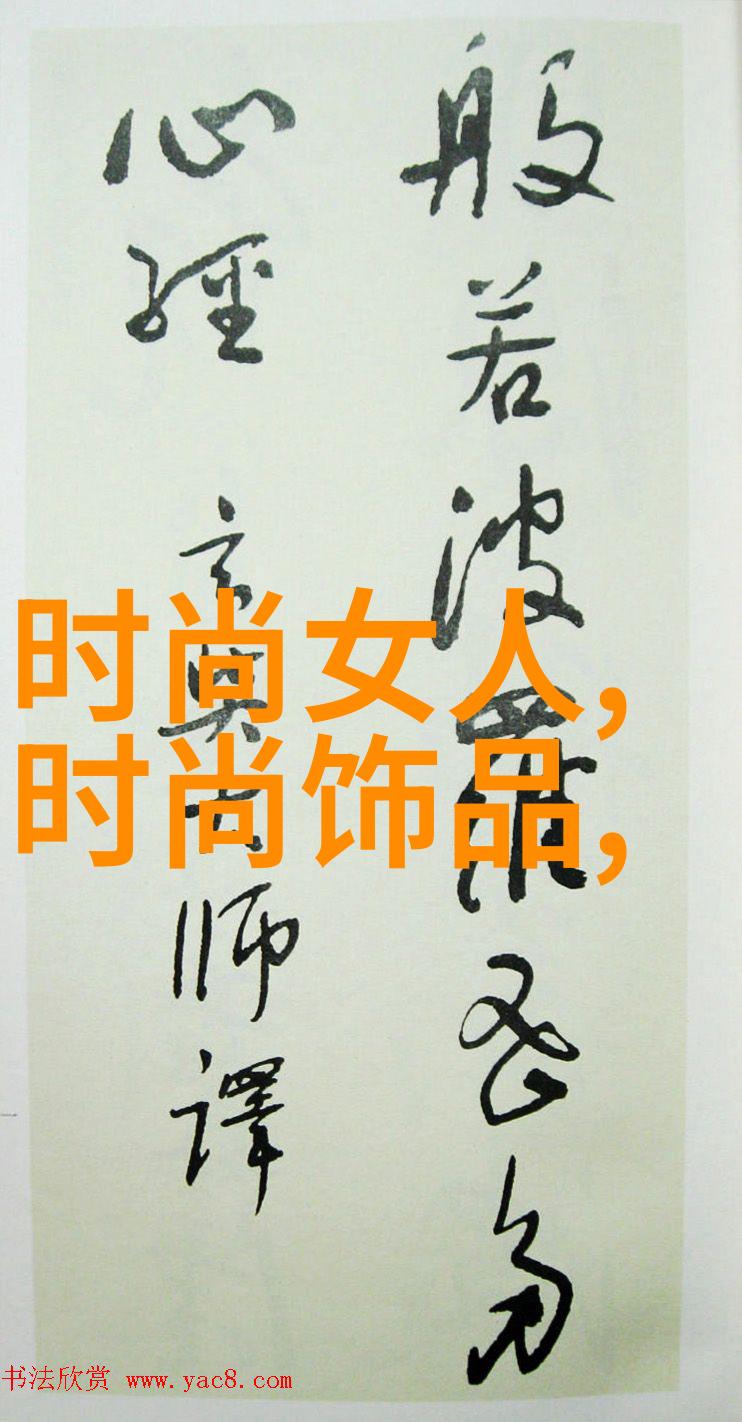 般若波羅蜜多
心經 玄奘師譯
时尚女人,
时尚饰品,
书法欣赏 www.yac8.com